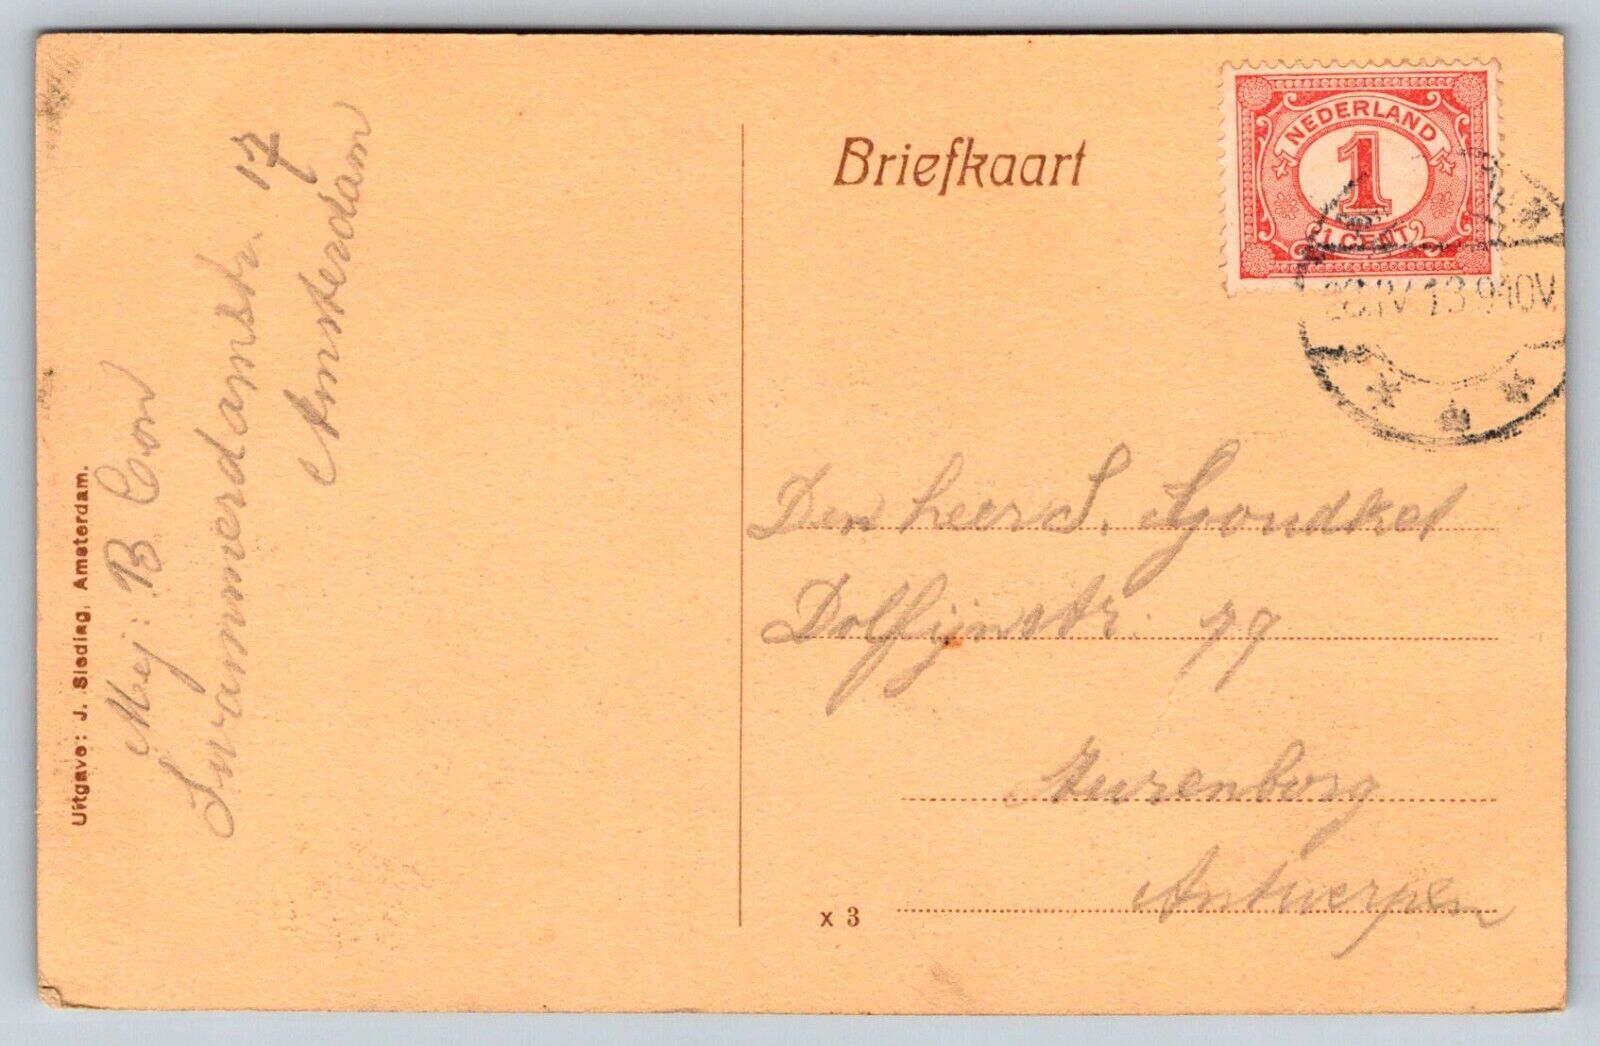 Briefkaart
NEDERLAND
1
1 CENT
IV 13 9-10V
Den heer S. Goudket
Dolfijnstr. 77
Zurenborg
Antwerpen
x 3
Mej: B Con
Swammerdamstr. 17
Amsterdam
Uitgave: J. Sleding, Amsterdam.